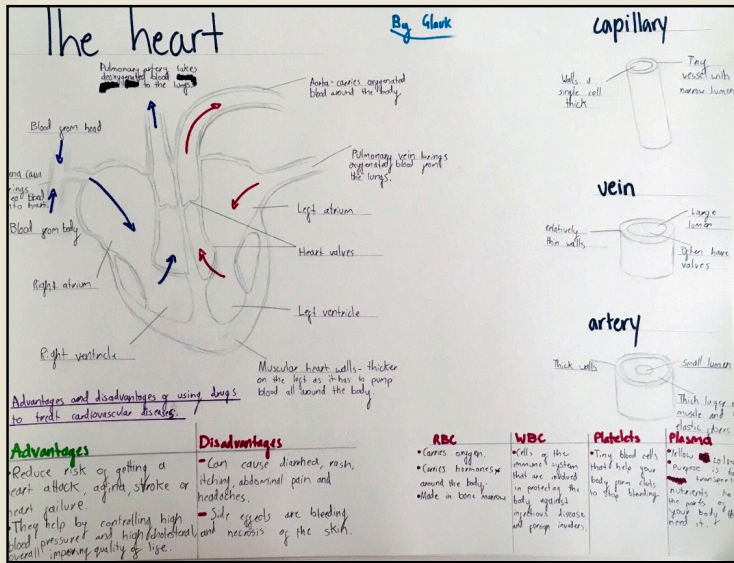 The heart
By
capillary
Pulmonary artery takes
deoxygenated blood
to the lungs.
Aorta- carries oxygenated
blood around the body.
Walls a
single cell
thick
Tiny
vessel with
narrow lumen
Blood from head
Pulmonary vein brings
oxygenated blood from
the lungs.
Blood from body
Left atrium
Heart valves
Right atrium
Left ventricle
Right ventricle
Muscular heart walls- thicker
on the left as it has to pump
blood all around the body.
vein
relatively
thin walls
Large
lumen
Often have
valves
artery
Thick walls
Small lumen
Thick layer
muscle and
elastic fibers
Advantages and disadvantages of using drugs
to treat cardiovascular diseases.
Advantages
• Reduce risk of getting a
heart attack, stroke or
heart failure.
• They help by controlling high
blood pressure and high cholesterol
overall quality of life.
Disadvantages
- Can cause diarrhea, rash,
itching, abdominal pain and
headaches.
- Side effects are bleeding
and necrosis of the skin.
RBC
• Carries oxygen.
• Carries hormones
around the body.
• Made in bone marrow
WBC
• Cells of the
immune system
that are involved
in protecting the
body against
infectious disease
and foreign invaders.
Platelets
• Tiny blood cells
that help your
body form clots
to stop bleeding.
Plasma
• Yellow
• Purpose is
transport
nutrients
the parts of
your body
need it.